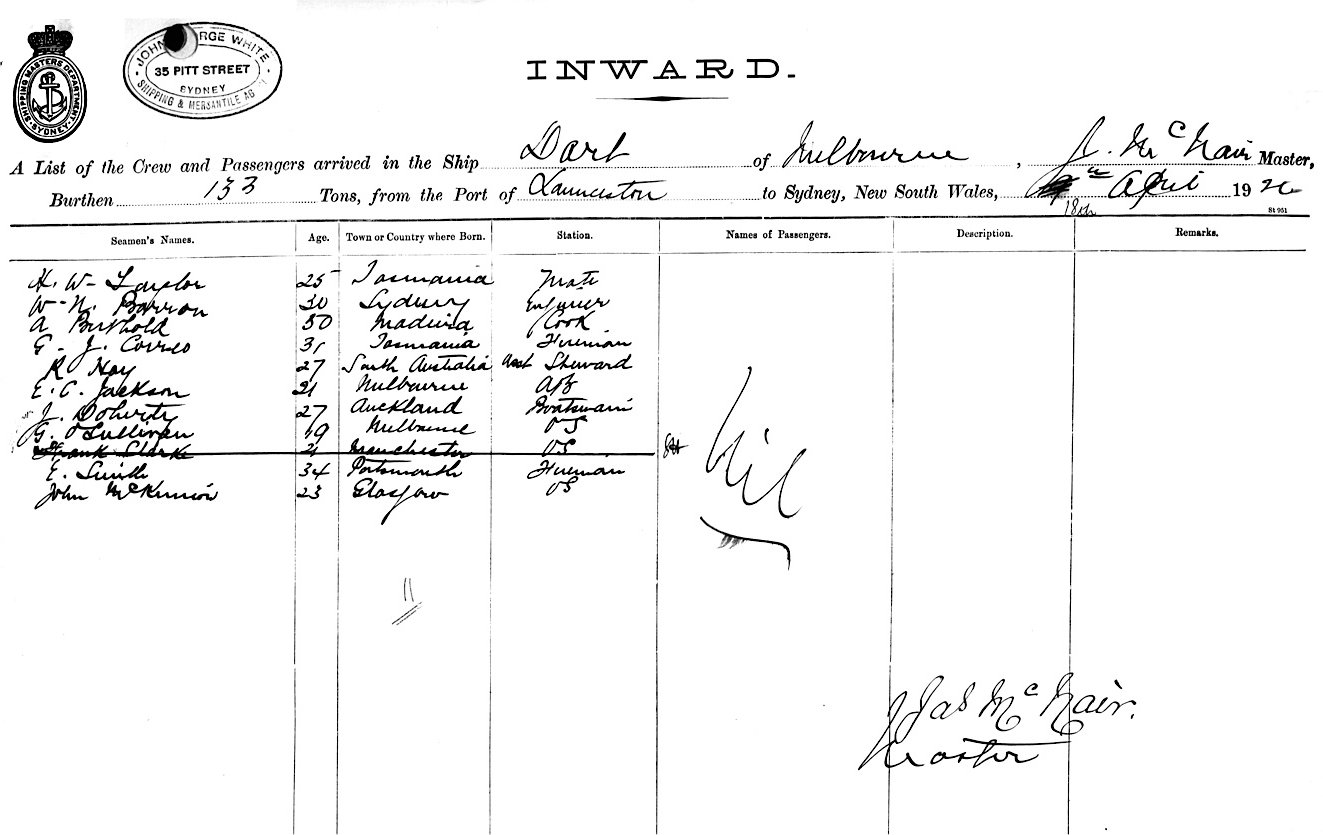 SHIPPING MASTERS DEPARTMENT
SYDNEY
JOHN GEORGE WHITE
35 PITT STREET
SYDNEY
SHIPPING & MERSANTILE AG
INWARD.
A List of the Crew and Passengers arrived in the Ship Dart of Melbourne, J. McNair Master,
Burthen 133 Tons, from the Port of Launceston to Sydney, New South Wales, 18th April 1920
St 951
Seamen's Names. Age. Town or Country where Born. Station. Names of Passengers. Description. Remarks.
H. W. Taylor 25 Tasmania Mate
W. N. Barron 30 Sydney Engineer
A Berthold 50 Madeira Cook
G. J. 31 Tasmania Fireman
R Hay 27 South Australia Asst Steward
E. C. Jackson 21 Melbourne AB
J. Doherty 27 Auckland Boatswain
G. O'Sullivan 19 Melbourne OS
Frank Clarke 21 Manchester OS
E. Smith 34 Portsmouth Fireman
John McKinnon 23 Glasgow OS
Nil
11
Jas McNair.
Master